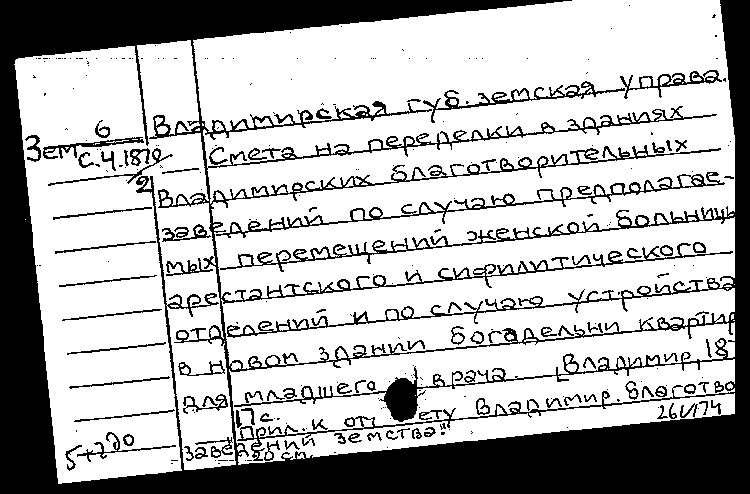 6 Владимирская губ. земская управа.
Зем
С.Ч.1870 Смета на переделки в зданиях
2 Владимирских благотворительных
заведений по случаю предполагае-
мых перемещений женской больницы
арестантского и сифилитического
отделений и по случаю устройства
в новом здании богадельни квартир
для младшего врача. [Владимир, 18
17 с.
"Прил. к отчету Владимир. благотво
заведений земства"
20 см.
26/V174